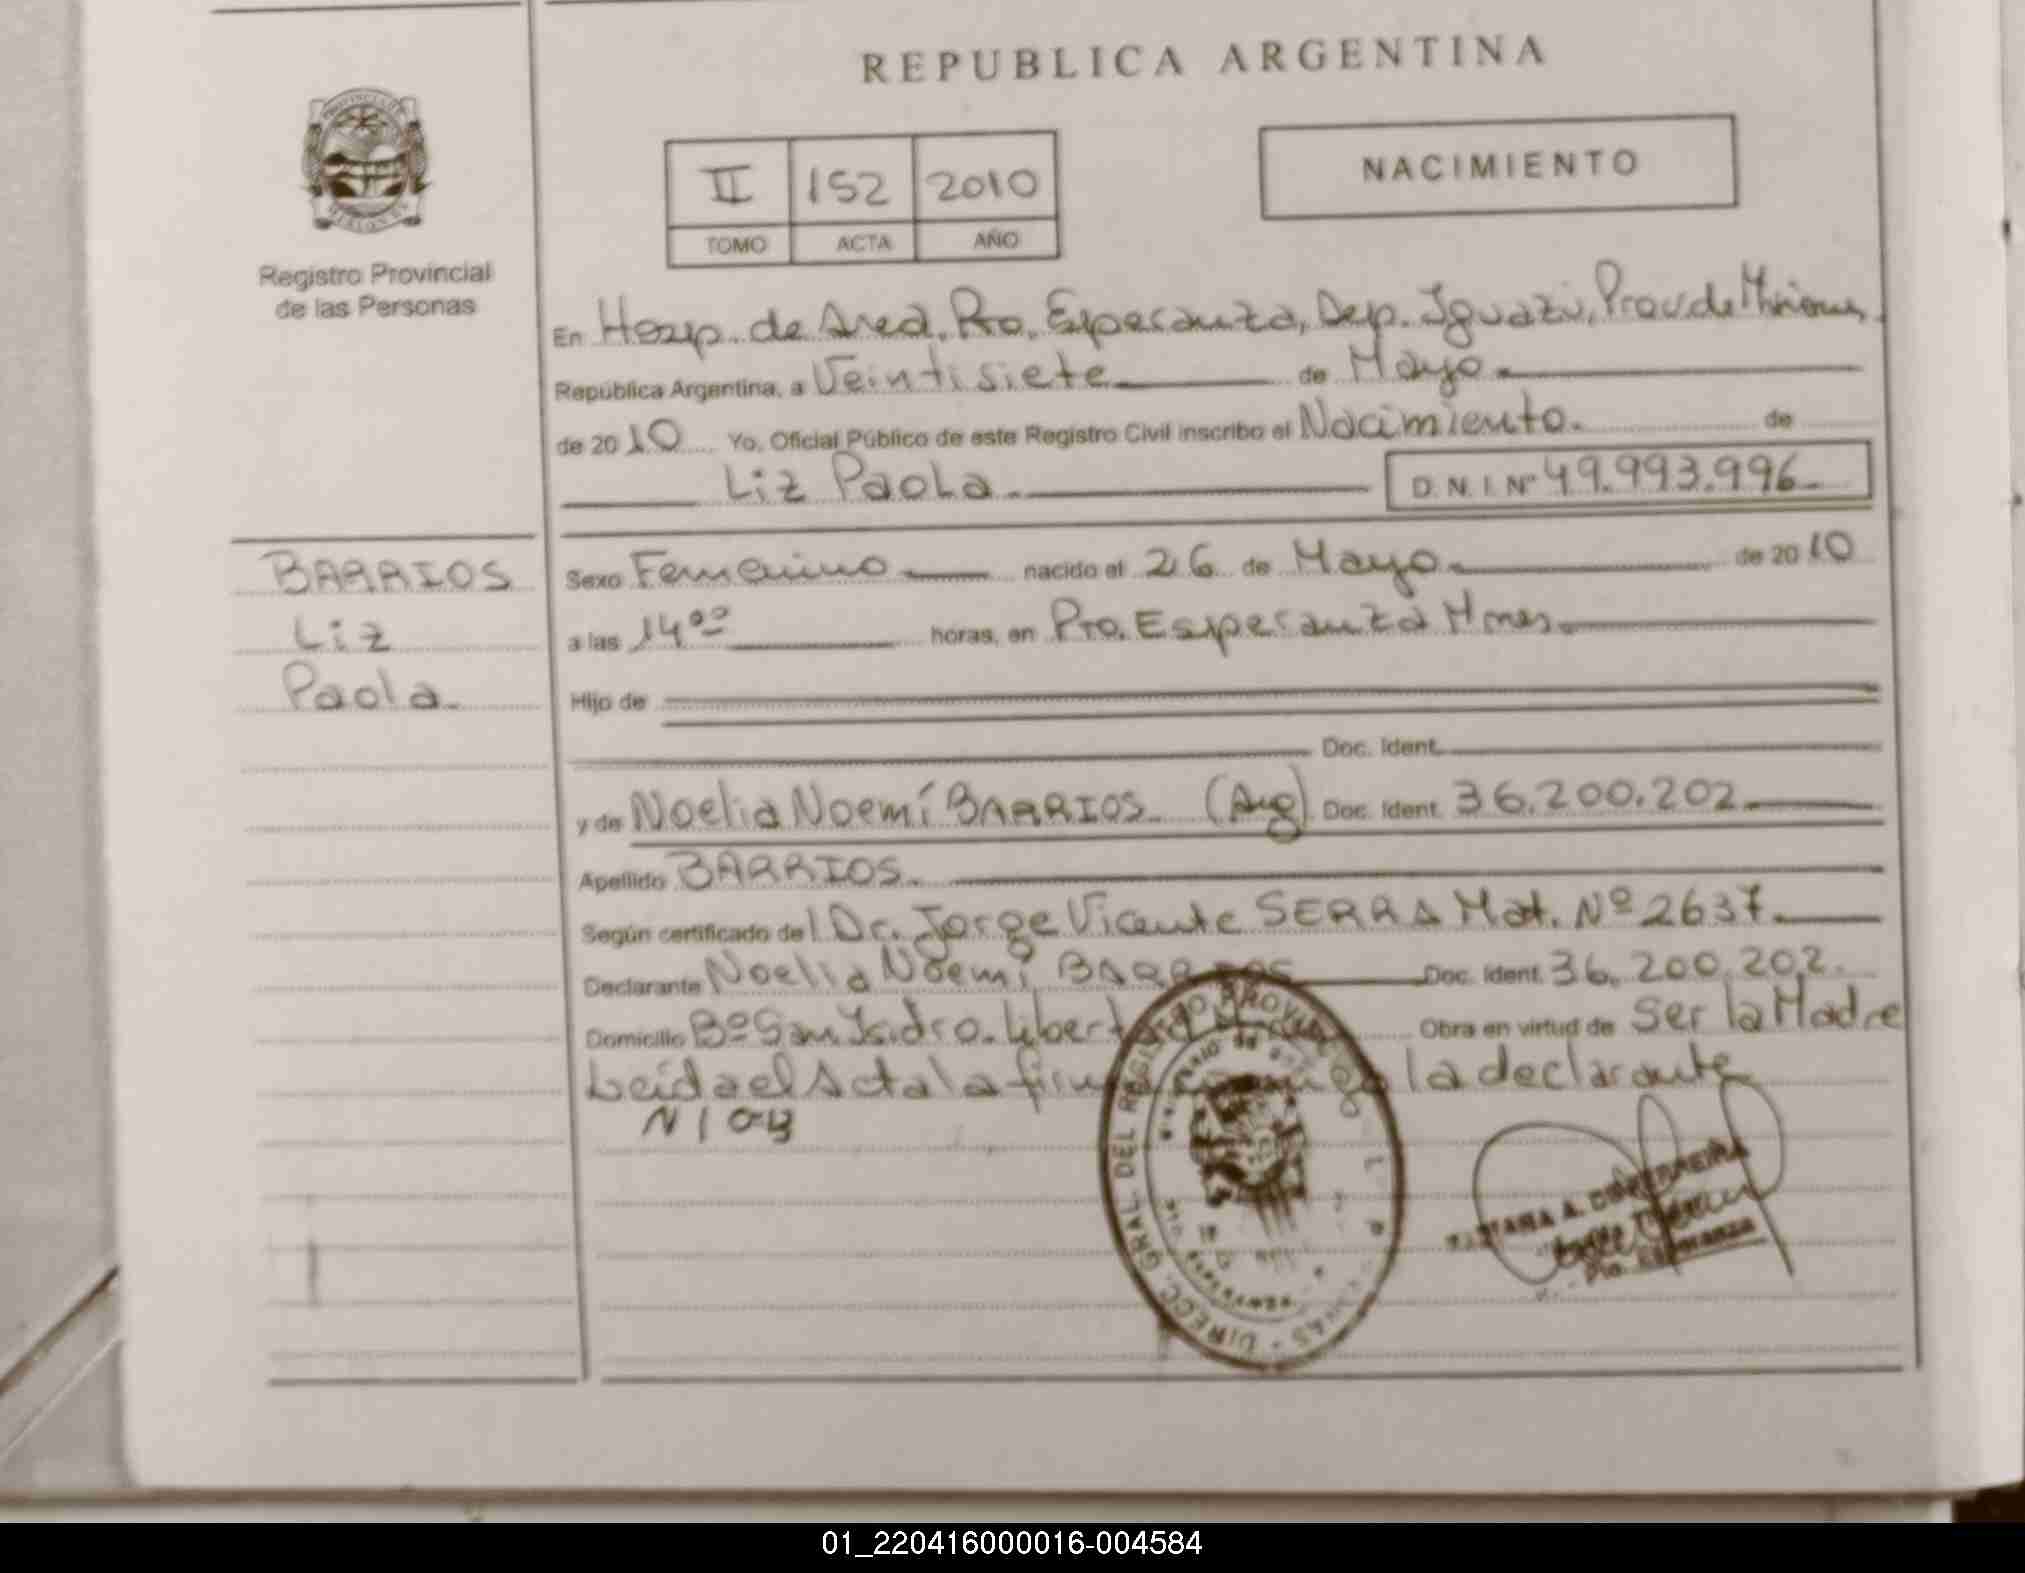 REPUBLICA ARGENTINA
NACIMIENTO
II 152 2010
TOMO ACTA AÑO
Registro Provincial
de las Personas
En Hosp. de Area. Pto. Esperanza, Dep. Iguazú, Prov. de Misiones,
República Argentina, a Veintisiete de Mayo
de 2010 Yo, Oficial Público de este Registro Civil inscribo el Nacimiento. de
Liz Paola. D. N. I. Nº 49.993.996
BARRIOS
Liz
Paola
Sexo Femenino nacido el 26 de Mayo de 2010
a las 14ºº horas, en Pto. Esperanza Mnes.
Hijo de
Doc. Ident.
y de Noelia Noemí BARRIOS. (Arg) Doc. Ident. 36.200.202
Apellido BARRIOS.
Según certificado del Dr. Jorge Vicente SERRA Mat. Nº 2637.
Declarante Noelia Noemí BARRIOS Doc. Ident. 36.200.202.
Domicilio Bº San Isidro. Obra en virtud de Ser la Madre
Leida el Acta la la declarante
DIRECC. GRAL DEL REGISTRO
01_220416000016-004584